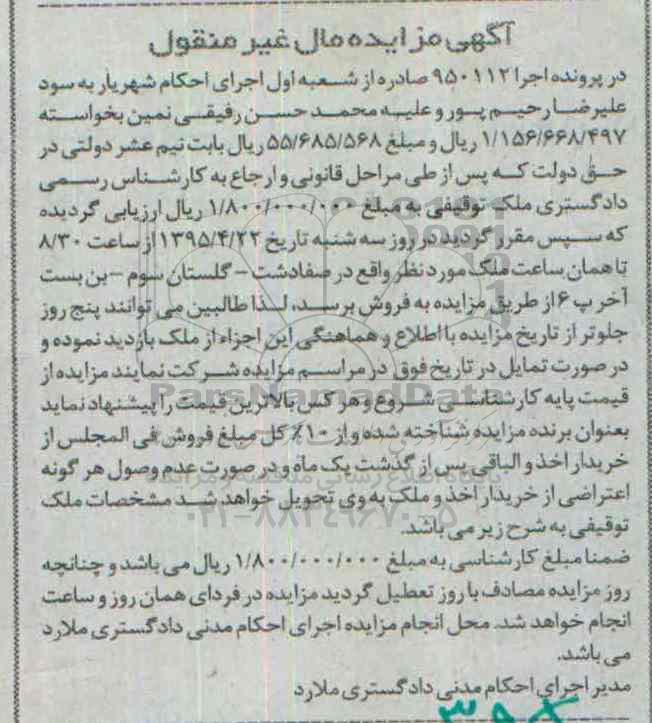 آگهی مزایده مال غیر منقول
در پرونده اجرا ۹۵۰۱۱۲ صادره از شعبه اول اجرای احکام شهریار به سود
علیرضا رحیم پور و علیه محمد حسن رفیقی نمین بخواسته
۱/۱۵۶/۶۶۸/۴۹۷ ریال و مبلغ ۵۵/۶۸۵/۵۶۸ ریال بابت نیم عشر دولتی در
حق دولت که پس از طی مراحل قانونی و ارجاع به کارشناس رسمی
دادگستری ملک توقیفی به مبلغ ۱/۸۰۰/۰۰۰/۰۰۰ ریال ارزیابی گردیده
که سپس مقرر گردید در روز سه شنبه تاریخ ۱۳۹۵/۴/۲۲ از ساعت ۸/۳۰
تا همان ساعت ملک مورد نظر واقع در صفادشت – گلستان سوم – بن بست
آخر پ ۶ از طریق مزایده به فروش برسد، لذا طالبین می توانند پنج روز
جلوتر از تاریخ مزایده با اطلاع و هماهنگی این اجراء از ملک بازدید نموده و
در صورت تمایل در تاریخ فوق در مراسم مزایده شرکت نمایند مزایده از
ParsNamadData
قیمت پایه کارشناسی شروع و هر کس بالاترین قیمت را پیشنهاد نماید
بعنوان برنده مزایده شناخته شده و از ۱۰٪ کل مبلغ فروش فی المجلس از
خریدار اخذ و الباقی پس از گذشت یک ماه و در صورت عدم وصول هر گونه
اعتراضی از خریدار اخذ و ملک به وی تحویل خواهد شد مشخصات ملک
۰۲۱-۸۸۳۴۹۶۷۰-۵
توقیفی به شرح زیر می باشد.
ضمنا مبلغ کارشناسی به مبلغ ۱/۸۰۰/۰۰۰/۰۰۰ ریال می باشد و چنانچه
روز مزایده مصادف با روز تعطیل گردید مزایده در فردای همان روز و ساعت
انجام خواهد شد. محل انجام مزایده اجرای احکام مدنی دادگستری ملارد
می باشد.
مدیر اجرای احکام مدنی دادگستری ملارد